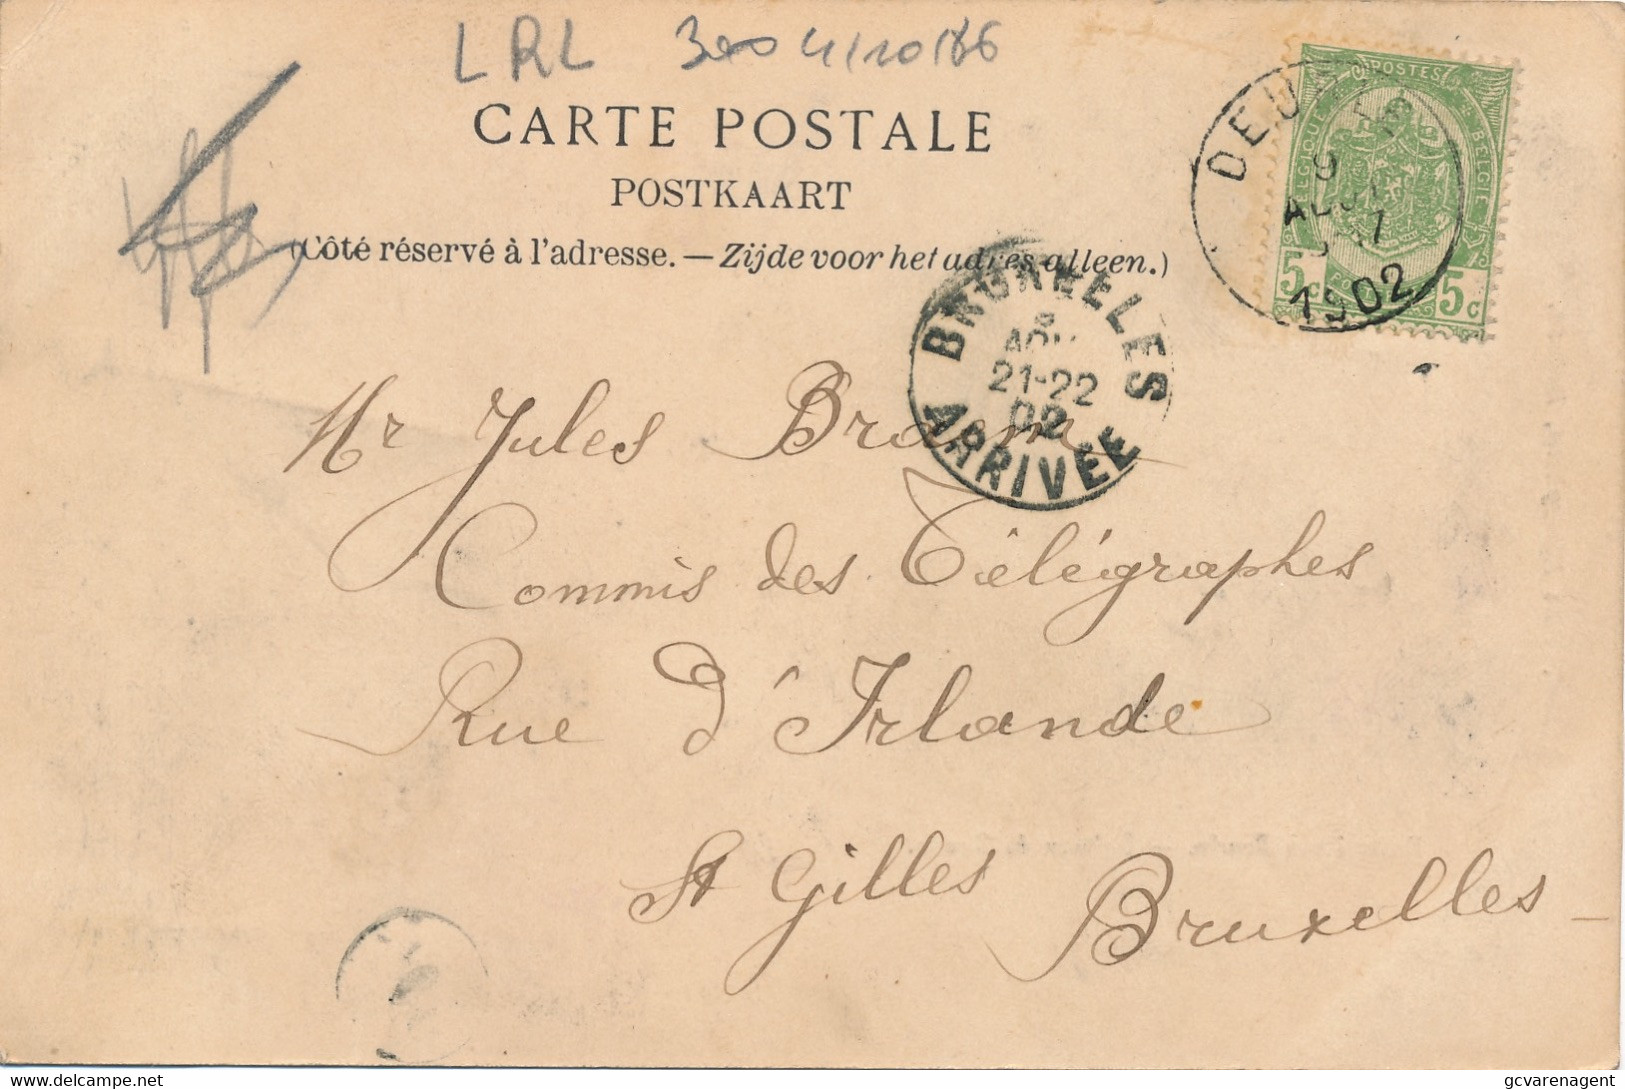 LRL 300 4/10/86
CARTE POSTALE
POSTKAART
(Côté réservé à l'adresse. — Zijde voor het adres alleen.)
POSTES
BELGIQUE BELGIE
5c 5c
9
1902
BRUXELLES
21-22
02
ARRIVÉE
Mr Jules
Commis des Télégraphes
Rue d'Irlande
St Gilles Bruxelles
gcvarenagent
© delcampe.net